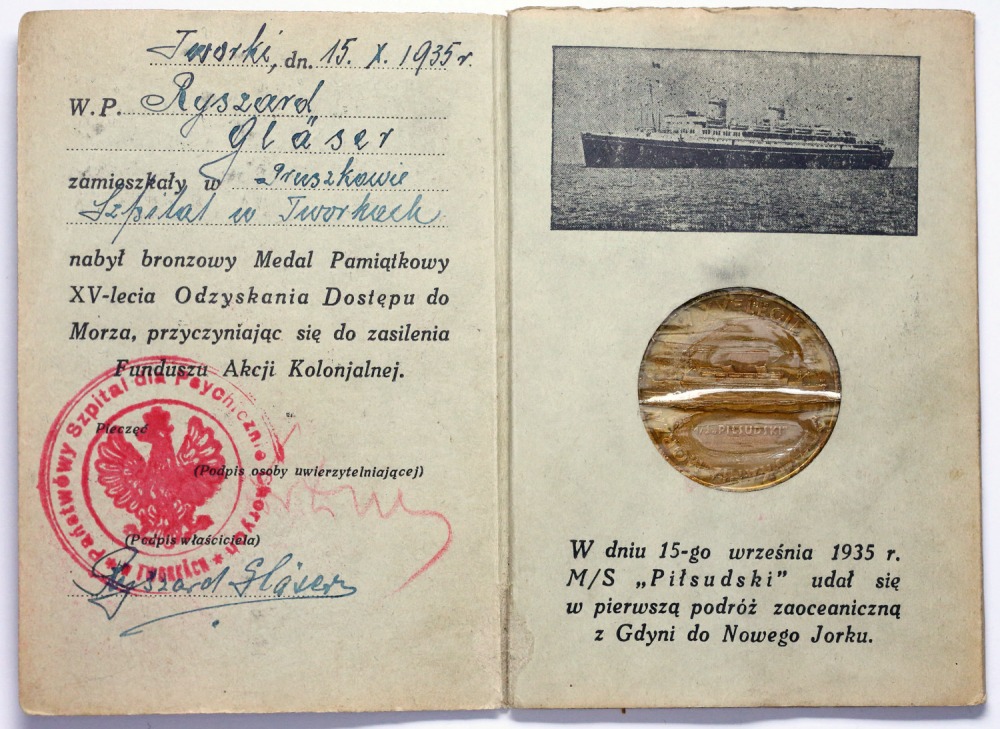 Tworki, dn. 15. X. 1935 r.
W.P. Ryszard
Gläser
zamieszkały w Pruszkowie
Szpital w Tworkach
nabył bronzowy Medal Pamiątkowy
XV-lecia Odzyskania Dostępu do
Morza, przyczyniając się do zasilenia
Funduszu Akcji Kolonjalnej.
Pieczęć
(Podpis osoby uwierzytelniającej)
(Podpis właściciela)
Ryszard Gläser
Państwowy Szpital dla Psychicznie Chorych
W TWORKACH
PIŁSUDSKI
W dniu 15-go września 1935 r.
M/S „Piłsudski” udał się
w pierwszą podróż zaoceaniczną
z Gdyni do Nowego Jorku.